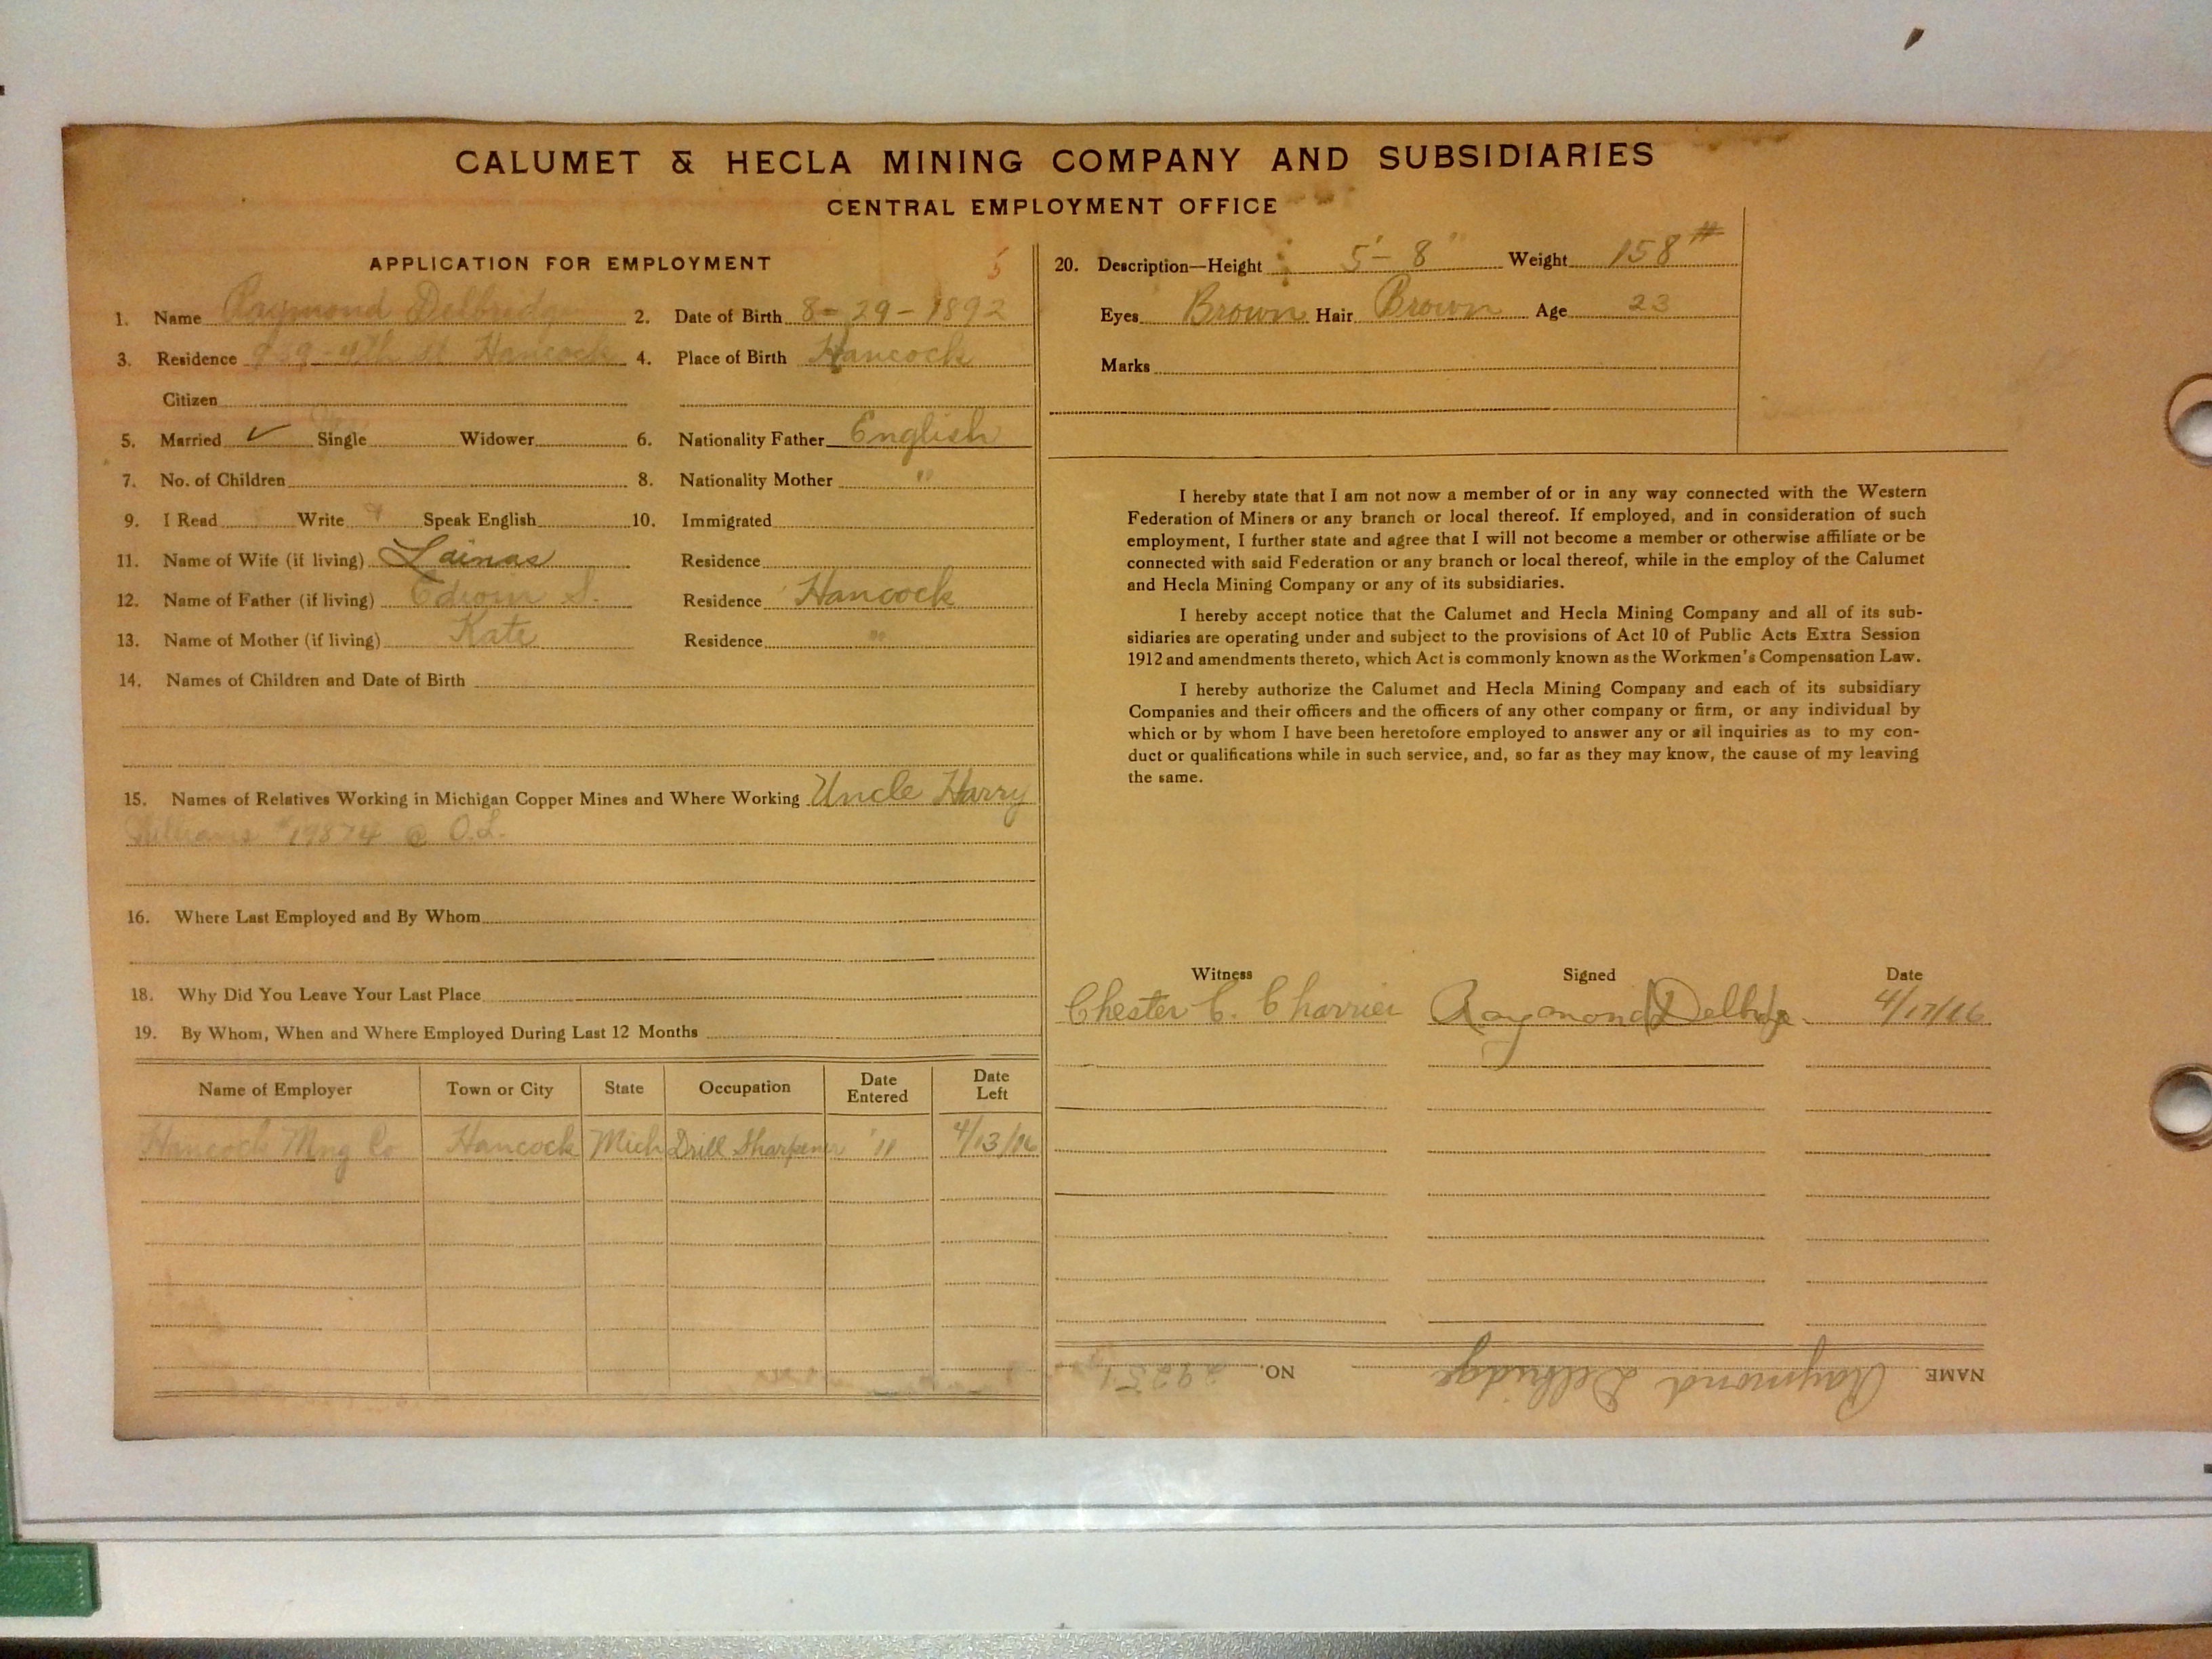 CALUMET & HECLA MINING COMPANY AND SUBSIDIARIES
CENTRAL EMPLOYMENT OFFICE
APPLICATION FOR EMPLOYMENT 5
1. Name Raymond Delbridge 2. Date of Birth 8-29-1892
3. Residence 4th St. Hancock 4. Place of Birth Hancock
Citizen
5. Married ✓ Single Widower 6. Nationality Father English
7. No. of Children 8. Nationality Mother "
9. I Read Write Speak English 10. Immigrated
11. Name of Wife (if living) Residence
12. Name of Father (if living) Edwin S. Residence Hancock
13. Name of Mother (if living) Kate Residence "
14. Names of Children and Date of Birth
15. Names of Relatives Working in Michigan Copper Mines and Where Working Uncle Harry
Williams #19874 @ O.L.
16. Where Last Employed and By Whom
18. Why Did You Leave Your Last Place
19. By Whom, When and Where Employed During Last 12 Months
Name of Employer Town or City State Occupation Date Entered Date Left
Hancock Mng Co Hancock Mich Drill Sharpener '11 4/13/16
20. Description—Height 5'-8" Weight 158#
Eyes Brown Hair Brown Age 23
Marks
I hereby state that I am not now a member of or in any way connected with the Western
Federation of Miners or any branch or local thereof. If employed, and in consideration of such
employment, I further state and agree that I will not become a member or otherwise affiliate or be
connected with said Federation or any branch or local thereof, while in the employ of the Calumet
and Hecla Mining Company or any of its subsidiaries.
I hereby accept notice that the Calumet and Hecla Mining Company and all of its sub-
sidiaries are operating under and subject to the provisions of Act 10 of Public Acts Extra Session
1912 and amendments thereto, which Act is commonly known as the Workmen's Compensation Law.
I hereby authorize the Calumet and Hecla Mining Company and each of its subsidiary
Companies and their officers and the officers of any other company or firm, or any individual by
which or by whom I have been heretofore employed to answer any or all inquiries as to my con-
duct or qualifications while in such service, and, so far as they may know, the cause of my leaving
the same.
Witness Signed Date
Chester C. Charrier Raymond Delbridge 4/17/16
NAME Raymond Delbridge NO. 29251